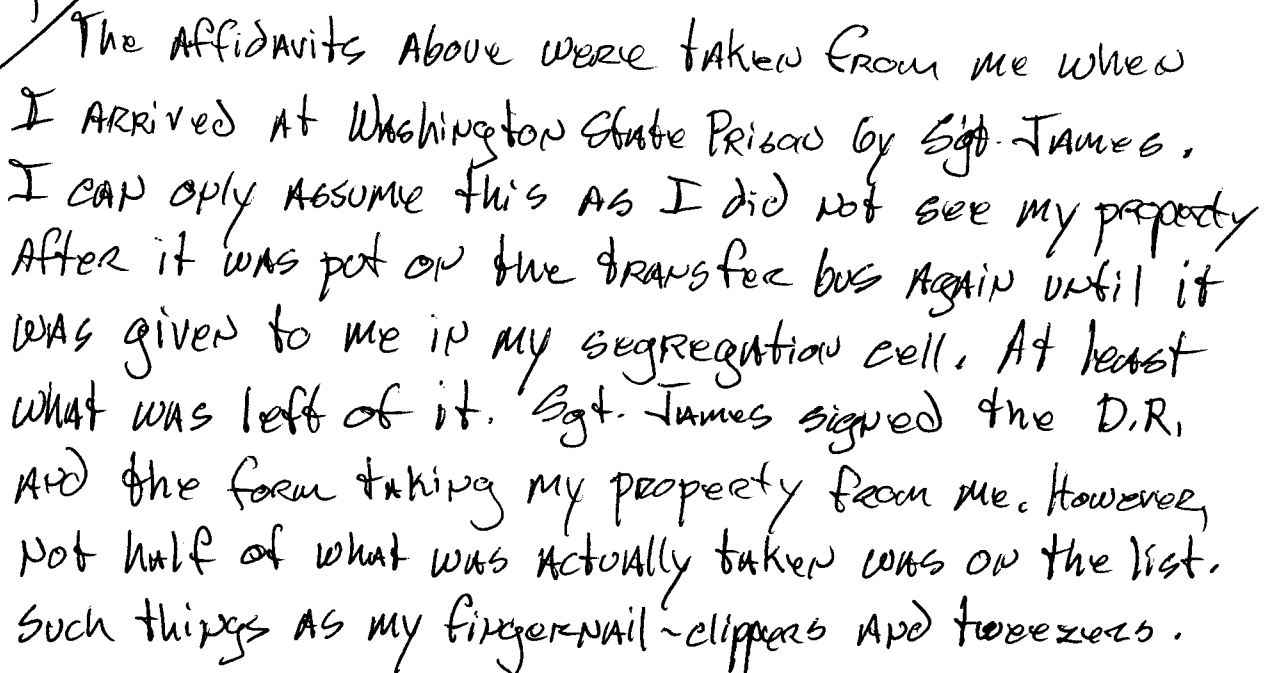 The Affidavits Above were taken from me when
I ARRived At Washington State Prison by Sgt. James.
I can only Assume this as I did not see my property
After it was put on the transfer bus Again until it
was given to me in my segregation cell. At least
what was left of it. Sgt. James signed the D.R.
And the form taking my property from me. However,
Not half of what was Actually taken was on the list.
Such things as my fingernail-clippers And tweezers.